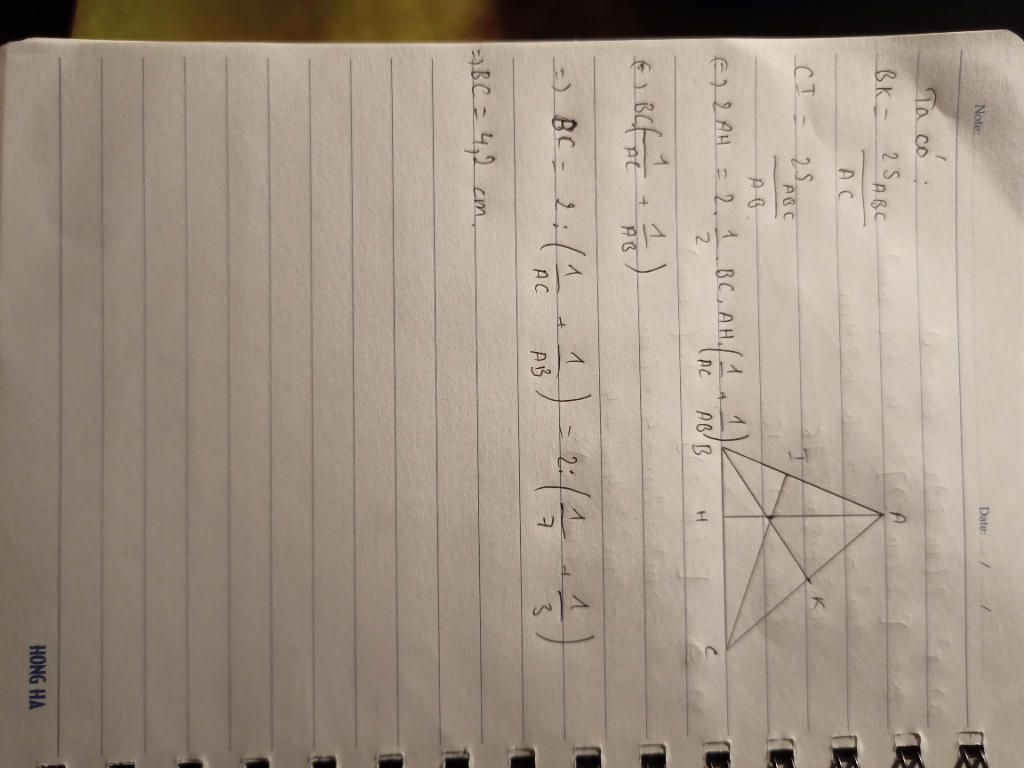 Note: Date: / /
Ta có:
BK = 2S_ABC / AC
CI = 2S_ABC / AB
(=) 2AH = 2 . 1/2 . BC . AH (1/AC + 1/AB)
(=) BC (1/AC + 1/AB)
=) BC = 2 : (1/AC + 1/AB) = 2 : (1/7 + 1/3)
=) BC = 4,2 cm.
A
I
K
B
H
C
HONG HA